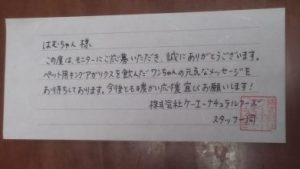 はむちゃん 様、
この度は、モニターにご応募いただき、誠にありがとうございます。
ペット用キングアガリクスを飲んだワンちゃんの元気なメッセージを
お待ちしております。今後とも暖かい応援宜しくお願いします!
株式会社ケーエーナチュラルフーズ
スタッフ一同